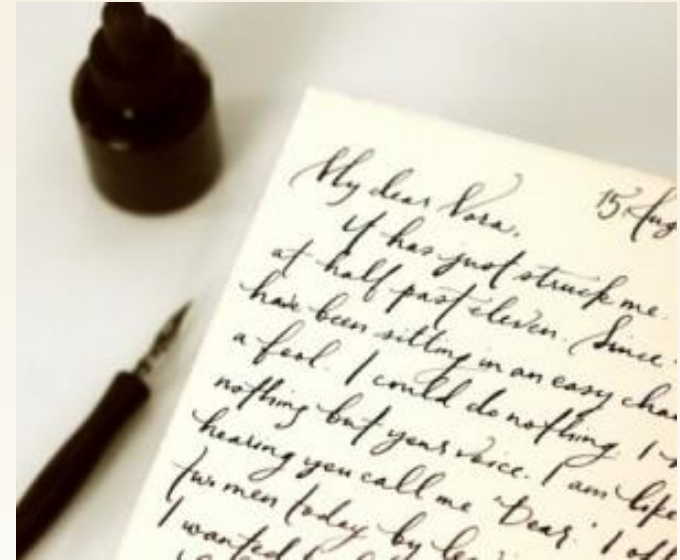 My dear Nora,
15 Aug
It has just struck me.
at half past eleven. Since
have been sitting in an easy chai
a fool. I could do nothing. I
nothing but your voice. I am like
hearing you call me 'Dear.' I off
two men today by le
I wanted